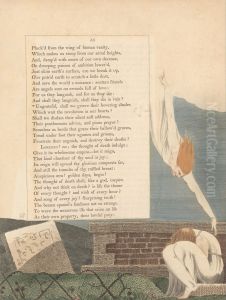 Pluck'd from the wing of human vanity,
Which makes us stoop from our aërial heights,
And, damp'd with omen of our own decease,
On drooping pinions of ambition lower'd,
Just skim earth's surface, ere we break it up,
O'er putrid earth to scratch a little dust,
And save the world a nuisance: smitten friends
Are angels sent on errands full of love;
For us they languish, and for us they die:
And shall they languish, shall they die in vain?
Ungrateful, shall we grieve their hovering shades
Which wait the revolution in our hearts?
Shall we disdain their silent soft address,
Their posthumous advice, and pious prayer?
Senseless as herds that graze their hallow'd graves,
Tread under foot their agonies and groans,
Frustrate their anguish, and destroy their deaths?
Lorenzo! no; the thought of death indulge;
Give it its wholesome empire—let it reign,
That kind chastiser of thy soul in joy:
Its reign will spread thy glorious conquests far,
And still the tumults of thy ruffled breast:
Auspicious æra! golden days, begin!
The thought of death shall, like a god, inspire.
And why not think on death? is life the theme
Of every thought? and wish of every hour?
And song of every joy? Surprising truth!
The beaten spaniel's fondness not so strange.
To wave the numerous ills that seize on life
As their own property, their lawful prey;
NiceArtGallery.com